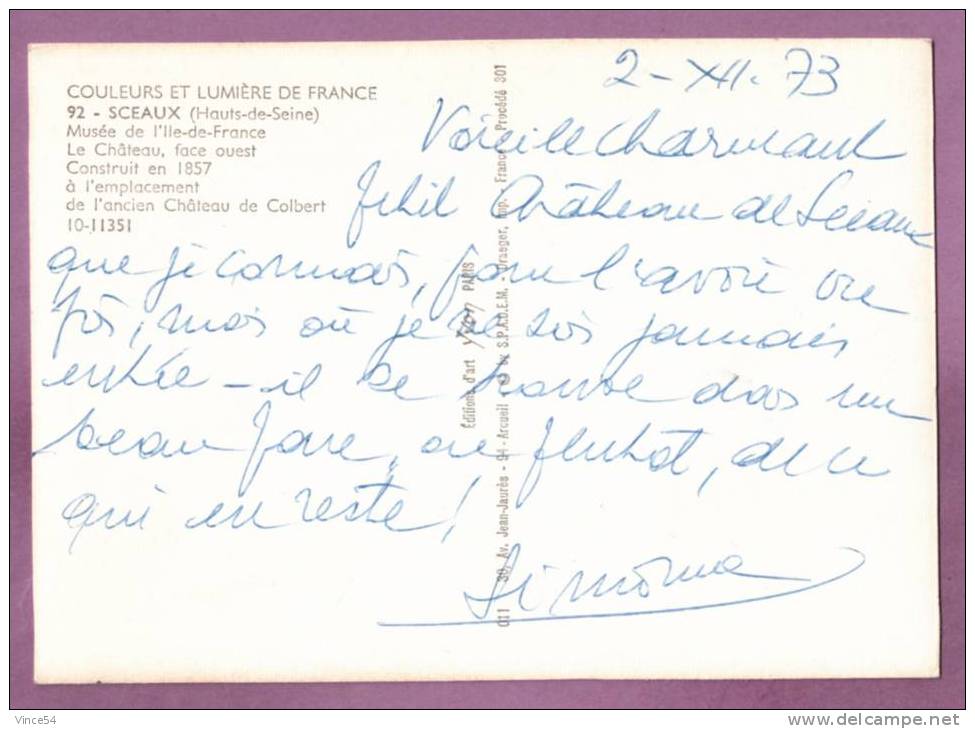 COULEURS ET LUMIÈRE DE FRANCE
92 - SCEAUX (Hauts-de-Seine)
Musée de l'Ile-de-France
Le Château, face ouest
Construit en 1857
à l'emplacement
de l'ancien Château de Colbert
10-11351
2-XII-73
Voici le charmant
petit Château de Sceaux
que je connais, pour l'avoir vu
, mais où je ne suis jamais
entrée - il se trouve dans un
beau parc, ou plutôt, de ce
qui en reste!
Simone
Éditions d'art Yvon PARIS
011 30, Av. Jean-Jaurès - 94-Arcueil - © by S.P.A.D.E.M. Draeger, Imp. - France Procédé 301
Vince54
http://www.delcampe.net